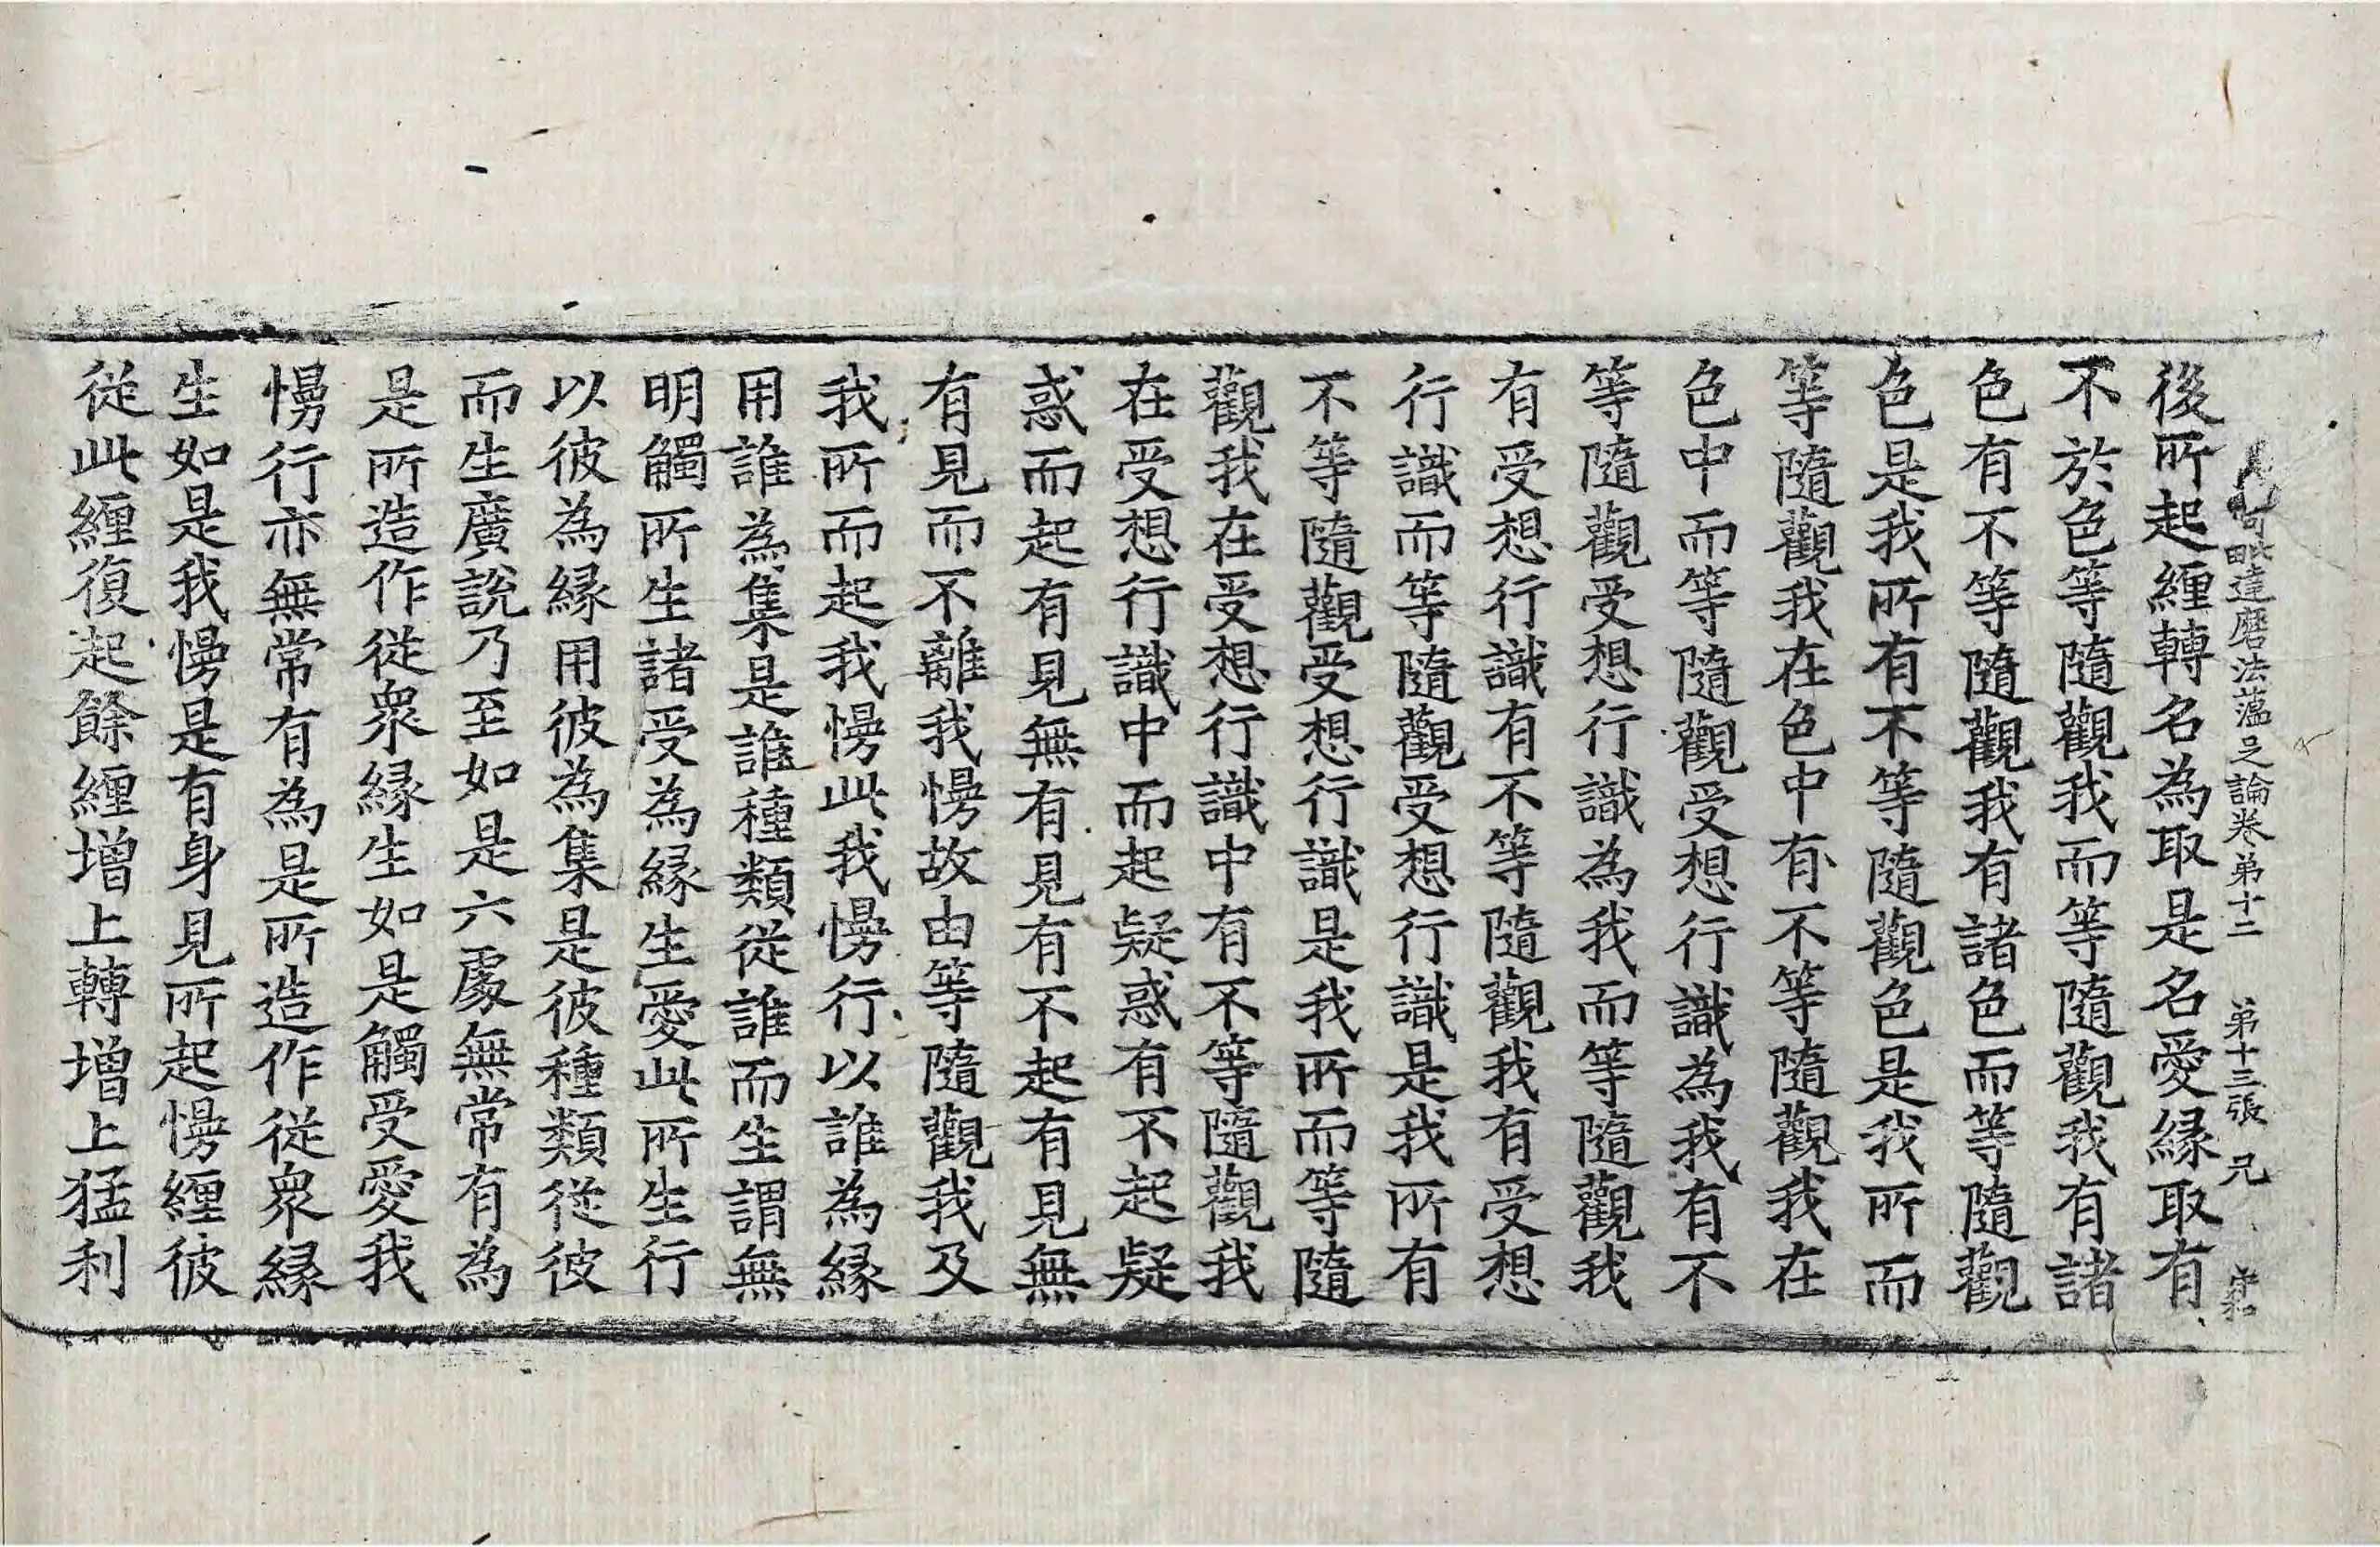 阿毗達磨法蘊足論卷第十二 第十三張 兄
後所起纏轉名為取是名愛緣取有
不於色等隨觀我而等隨觀我有諸
色有不等隨觀我有諸色而等隨觀
色是我所有不等隨觀色是我所而
等隨觀我在色中有不等隨觀我在
色中而等隨觀受想行識為我有不
等隨觀受想行識為我而等隨觀我
有受想行識有不等隨觀我有受想
行識而等隨觀受想行識是我所有
不等隨觀受想行識是我所而等隨
觀我在受想行識中有不等隨觀我
在受想行識中而起疑惑有不起疑
惑而起有見無有見有不起有見無
有見而不離我慢故由等隨觀我及
我所而起我慢此我慢行以誰為緣
用誰為集是誰種類從誰而生謂無
明觸所生諸受為緣生愛此所生行
以彼為緣用彼為集是彼種類從彼
而生廣說乃至如是六處無常有為
是所造作從眾緣生如是觸受愛我
慢行亦無常有為是所造作從眾緣
生如是我慢是有身見所起慢纏彼
從此纏復起餘纏增上轉增上猛利